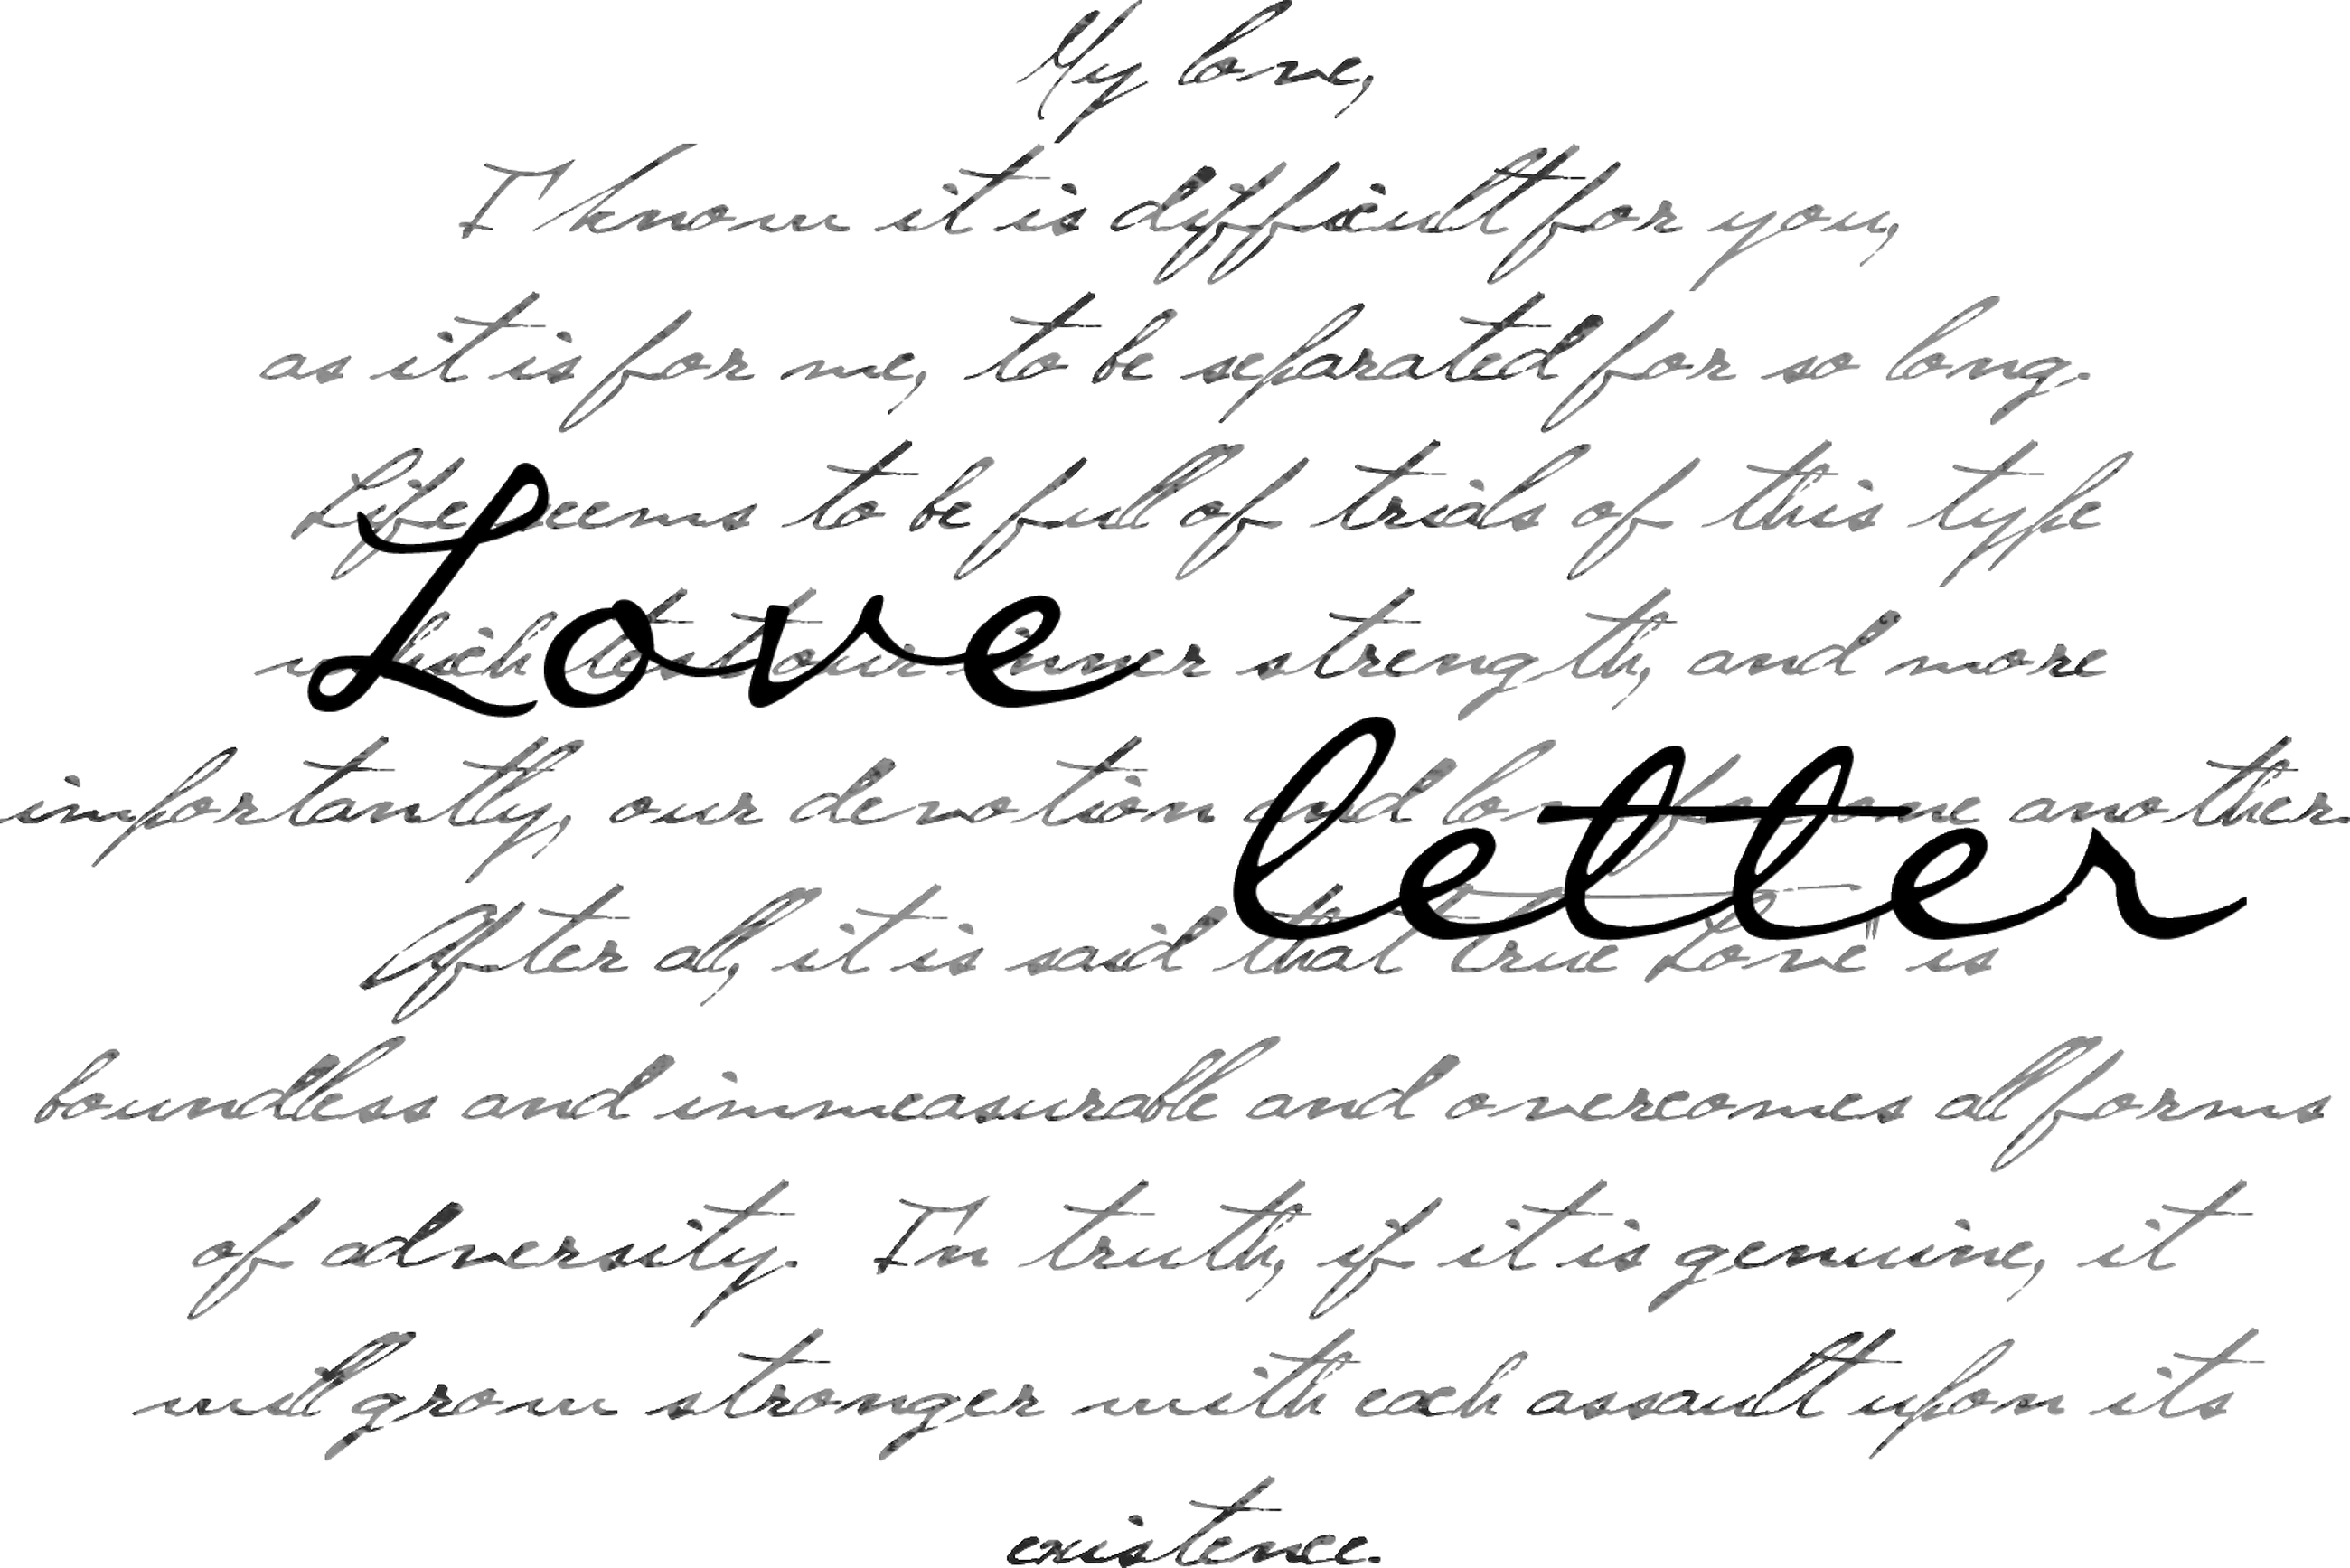 My love,
I know it is difficult for you,
as it is for me, to be separated for so long.
Life seems to be full of trials of this type
Love
which test our inner strength, and more
letter
importantly, our devotion and love for one another.
After all, it is said that "true Love" is
boundless and immeasurable and overcomes all forms
of adversity. In truth, if it is genuine, it
will grow stronger with each assault upon its
existence.